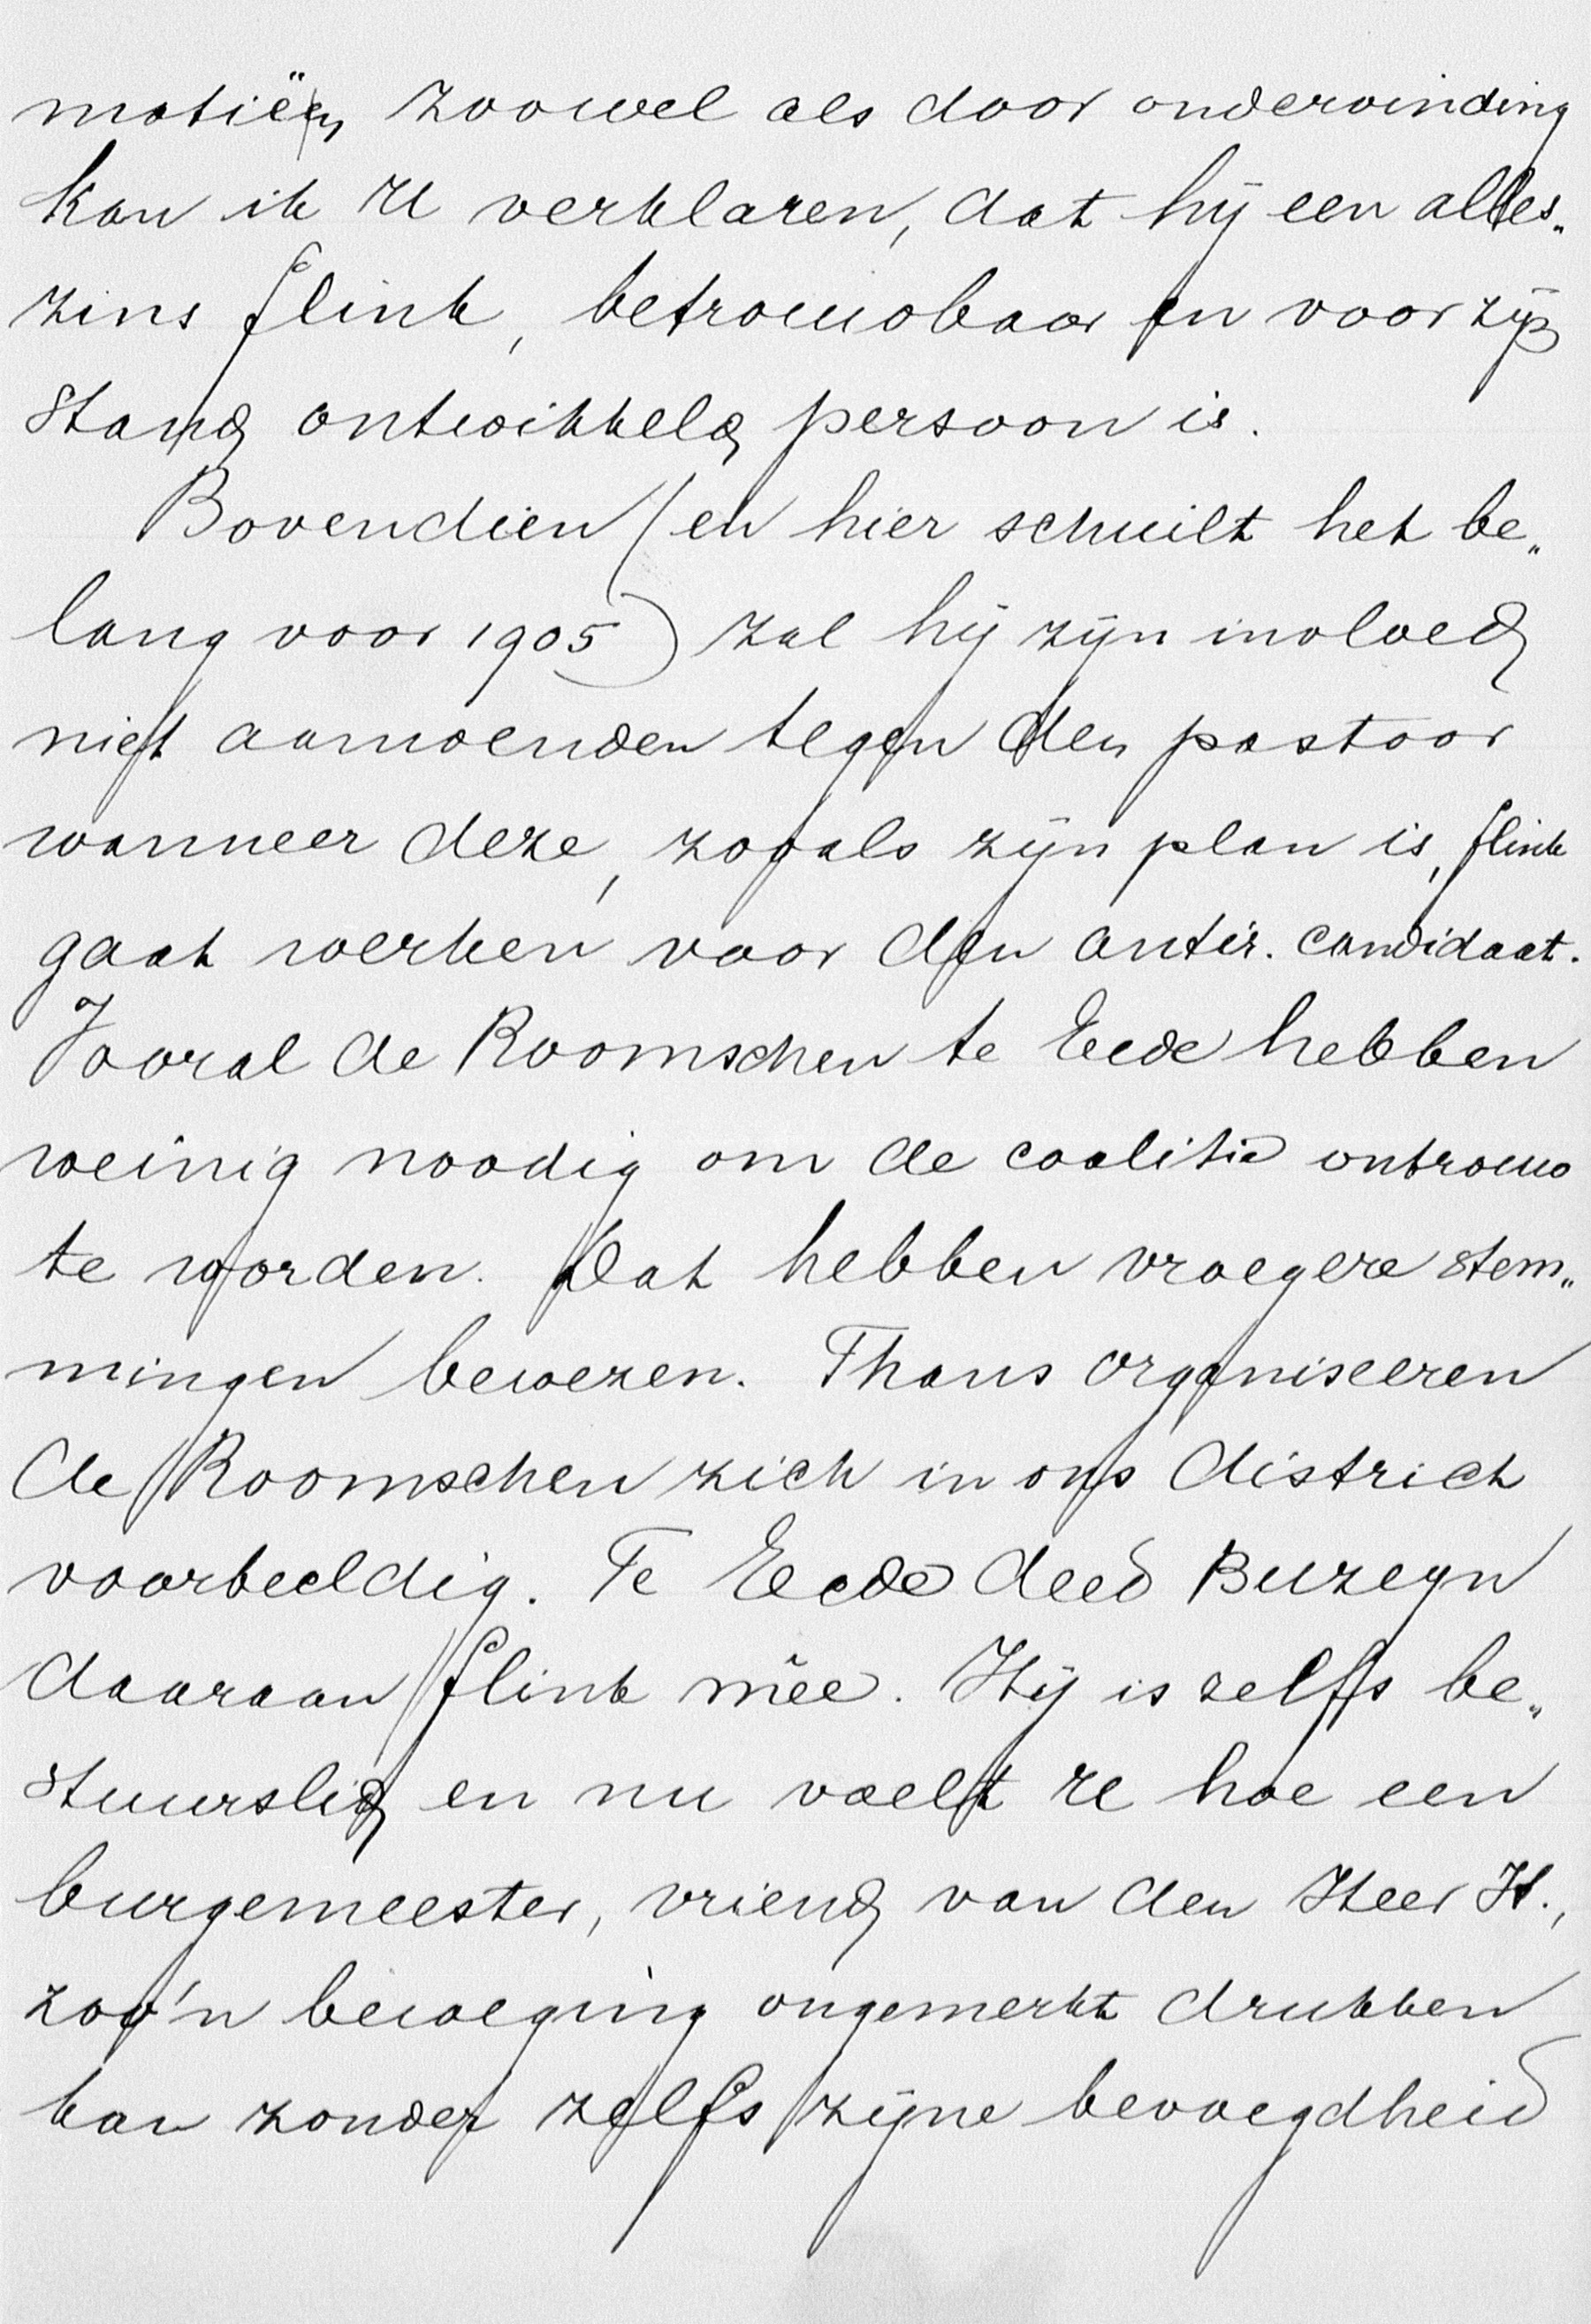 matiën zoowel als door ondervinding
kan ik U verklaren, dat hij een alles„
zins flink, betrouwbaar en voor zijn
stand ontwikkeld persoon is.
Bovendien (en hier schuilt het be„
lang voor 1905) zal hij zijn invloed
niet aanwenden tegen den pastoor
wanneer deze, zooals zijn plan is, flink
gaat werken voor den antir. candidaat.
Vooral de Roomschen te Eede hebben
weinig noodig om de coalitie ontrouw
te worden. Dat hebben vroegere stem„
mingen bewezen. Thans organiseeren
de Roomschen zich in ons district
voorbeeldig. Te Eede deed Buzeyn
daaraan flink mêe. Hij is zelfs be„
stuurslid en nu voelt U hoe een
burgemeester, vriend van den Heer H.,
zoo'n beweging ongemerkt drukken
kan zonder zelfs zijne bevoegdheid